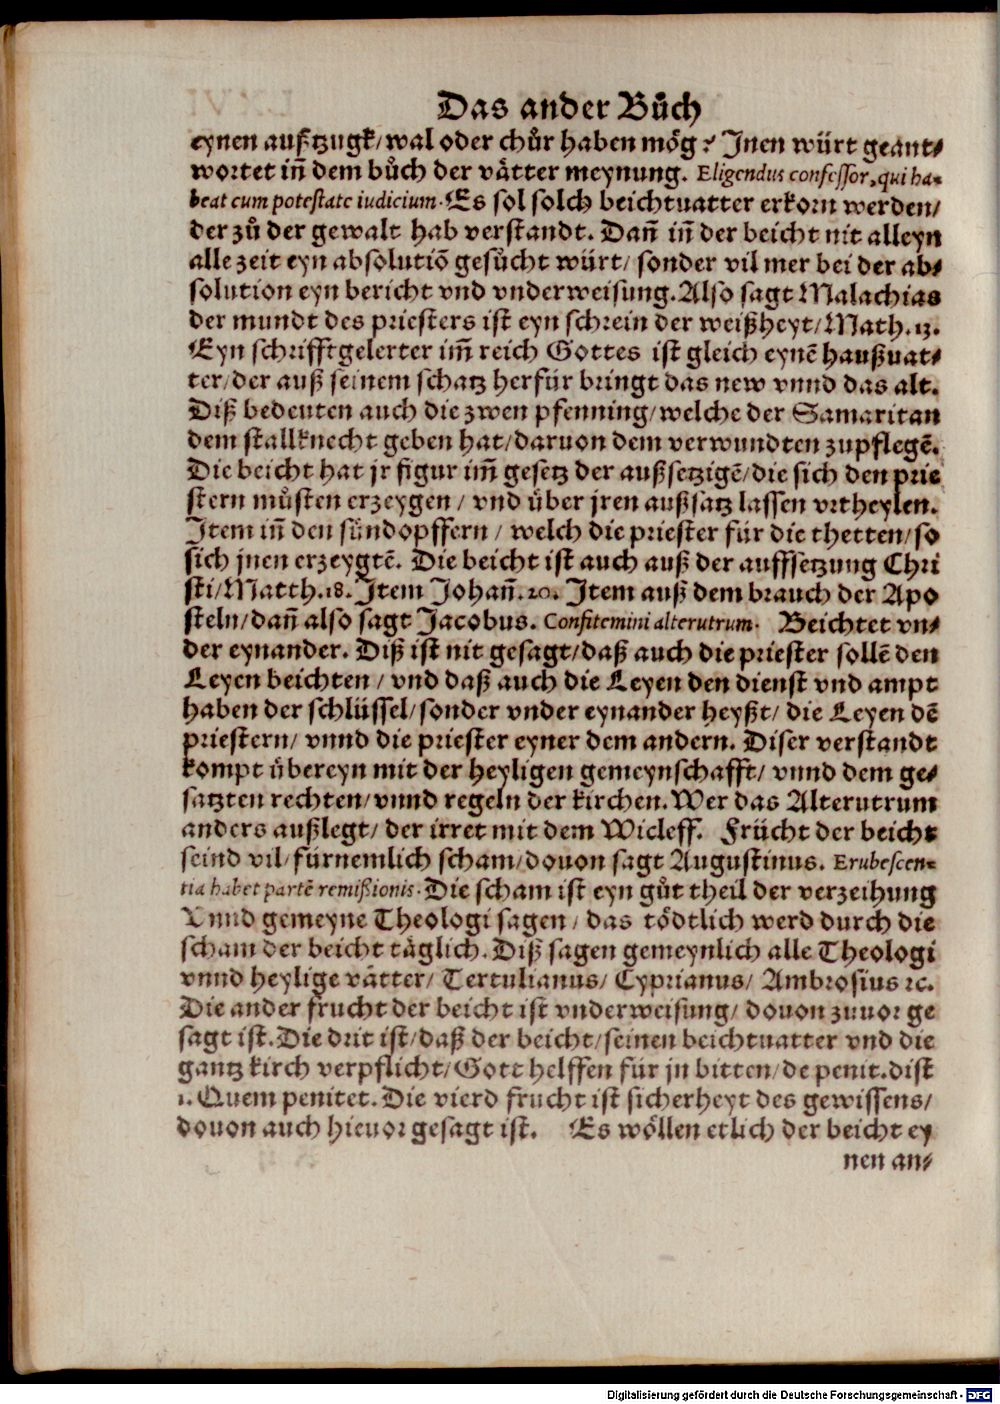 Das ander Bůch
eynen außtzugk/ wal oder chůr haben mög? Jnen würt geant⸗
wortet in̄ dem bůch der vätter meynung. Eligendus confessor, qui ha⸗
beat cum potestate iudicium. Es sol solch beichtuatter erkorn werden/
der zů der gewalt hab verstandt. Dan̄ in̄ der beicht nit alleyn
alle zeit eyn absolutiō gesůcht würt/ sonder vil mer bei der ab⸗
solution eyn bericht vnd vnderweisung. Also sagt Malachias
der mundt des priesters ist eyn schrein der weißheyt/ Math. 13.
Eyn schrifftgelerter im̄ reich Gottes ist gleich eynē haußuat⸗
ter/ der auß seinem schatz herfür bringt das new vnnd das alt.
Diß bedeuten auch die zwen pfenning/ welche der Samaritan
dem stallknecht geben hat/ daruon dem verwundten zupflegē.
Die beicht hat jr figur im̄ gesetz der außsetzigē/ die sich den prie
stern můsten erzeygen / vnd über jren außsatz lassen vrtheylen.
Jtem in̄ den sündopffern / welch die priester für die thetten/ so
sich jnen erzeygtē. Die beicht ist auch auß der auffsetzung Chri
sti/ Matth. 18. Jtem Johan̄. 20. Jtem auß dem brauch der Apo
steln/ dan̄ also sagt Jacobus. Confitemini alterutrum. Beichtet vn⸗
der eynander. Diß ist nit gesagt/ daß auch die priester sollē den
Leyen beichten / vnd daß auch die Leyen den dienst vnd ampt
haben der schlüssel/ sonder vnder eynander heyßt/ die Leyen dē
priestern/ vnnd die priester eyner dem andern. Diser verstandt
kompt übereyn mit der heyligen gemeynschafft/ vnnd dem ge⸗
satzten rechten/ vnnd regeln der kirchen. Wer das Alterutrum
anders außlegt/ der irret mit dem Wicleff. Frücht der beicht
seind vil/ fürnemlich scham/ douon sagt Augustinus. Erubescen⸗
tia habet partē remißionis. Die scham ist eyn gůt theil der verzeihung
Vnnd gemeyne Theologi sagen / das tödtlich werd durch die
scham der beicht täglich. Diß sagen gemeynlich alle Theologi
vnnd heylige vätter/ Tertulianus/ Cyprianus/ Ambrosius ⁊c.
Die ander frucht der beicht ist vnderweisung/ douon zuuor ge
sagt ist. Die drit ist/ daß der beicht/ seinen beichtuatter vnd die
gantz kirch verpflicht/ Gott helffen für jn bitten/ de penit. dist
1. Quem penitet. Die vierd frucht ist sicherheyt des gewissens/
douon auch hieuor gesagt ist. Es wöllen etlich der beicht ey
nen an⸗
Digitalisierung gefördert durch die Deutsche Forschungsgemeinschaft - DFG